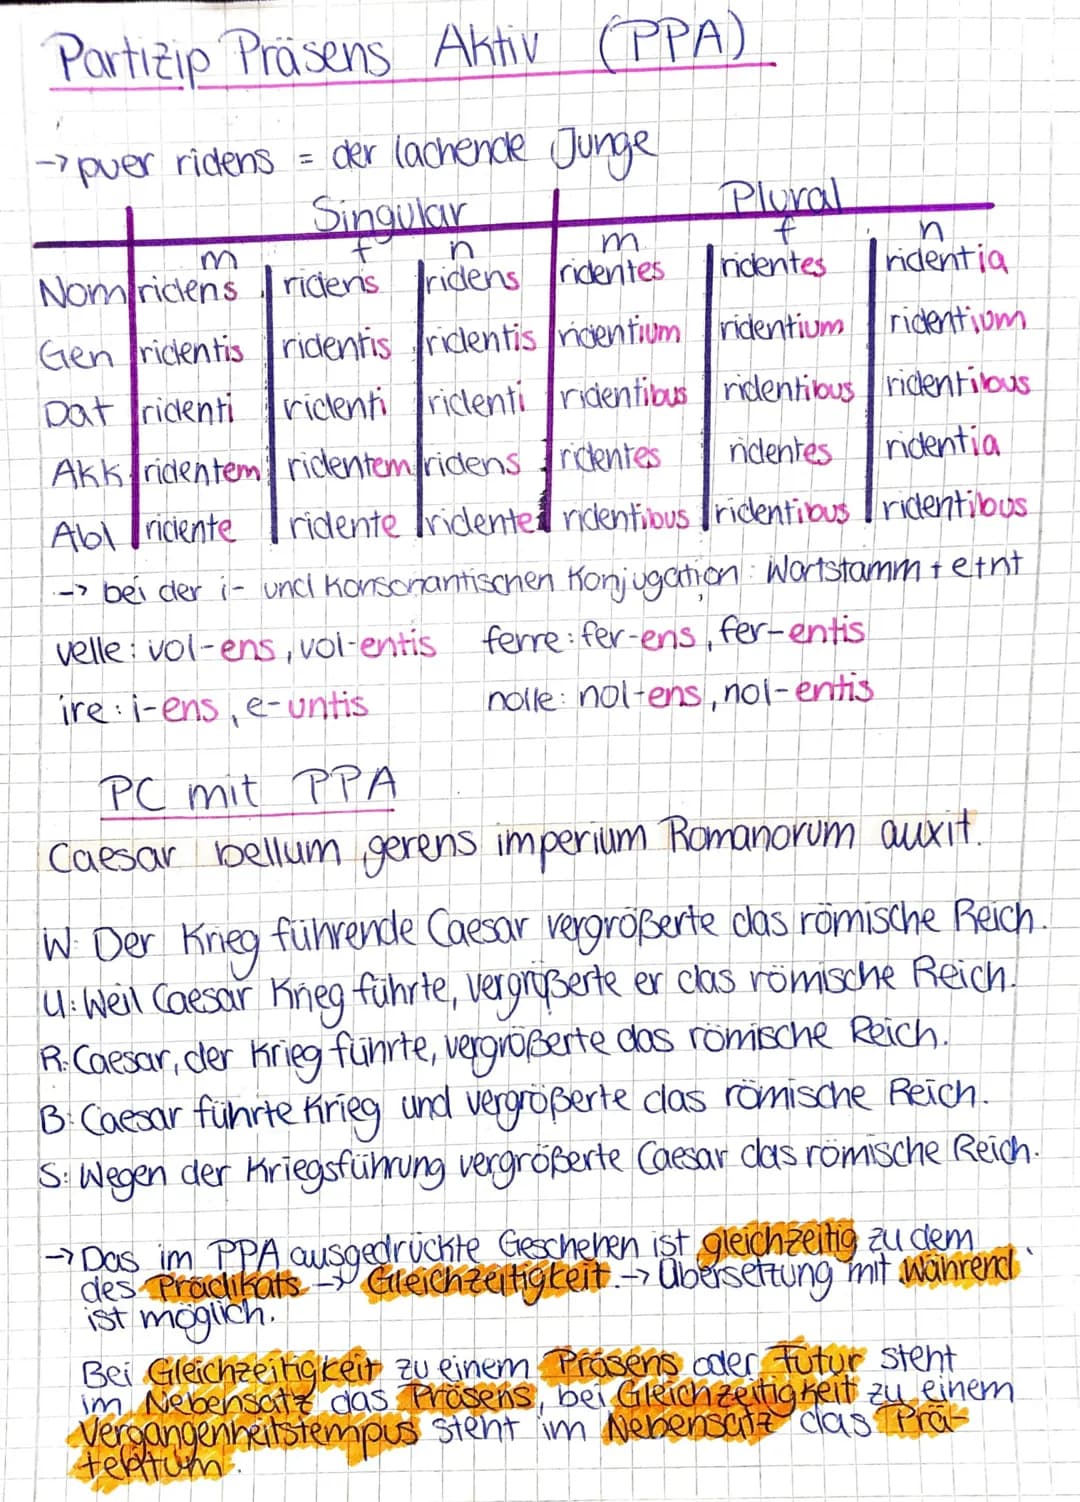 Partizip Präsens Aktiv (PPA)
-> puer ridens = der lachende Junge
Singular Plural
m f n m f n
Nom ridens ridens ridens ridentes ridentes ridentia
Gen ridentis ridentis ridentis ridentium ridentium ridentium
Dat ridenti ridenti ridenti ridentibus ridentibus ridentibus
Akk ridentem ridentem ridens ridentes ridentes ridentia
Abl ridente ridente ridente ridentibus ridentibus ridentibus
-> bei der i- und konsonantischen Konjugation: Wortstamm + e+nt
velle: vol-ens, vol-entis ferre: fer-ens, fer-entis
ire: i-ens, e-untis nolle: nol-ens, nol-entis
PC mit PPA
Caesar bellum gerens imperium Romanorum auxit.
W: Der Krieg führende Caesar vergrößerte das römische Reich.
U: Weil Caesar Krieg führte, vergrößerte er das römische Reich.
R: Caesar, der Krieg führte, vergrößerte das römische Reich.
B: Caesar führte Krieg und vergrößerte das römische Reich.
S: Wegen der Kriegsführung vergrößerte Caesar das römische Reich.
-> Das im PPA ausgedrückte Geschehen ist gleichzeitig zu dem
des Prädikats -> Gleichzeitigkeit. -> Übersetzung mit während
ist möglich.
Bei Gleichzeitigkeit zu einem Präsens oder Futur steht
im Nebensatz das Präsens, bei Gleichzeitigkeit zu einem
Vergangenheitstempus steht im Nebensatz das Prä-
teritum.